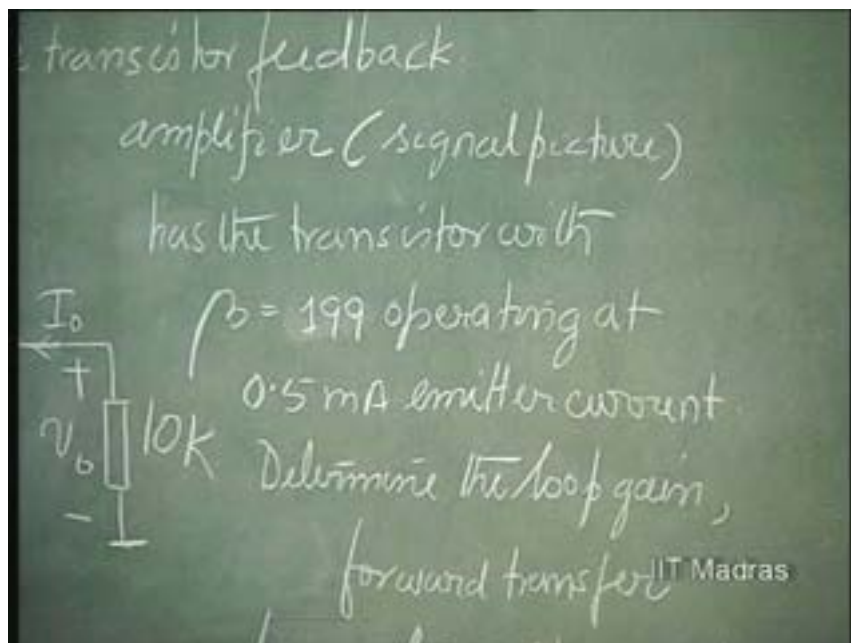 transistor feedback
amplifier (signal picture)
has the transistor with
I₀
β = 199 operating at
+
0.5 mA emitter current.
10K
Determine the loop gain,
-
forward transfer
IIT Madras